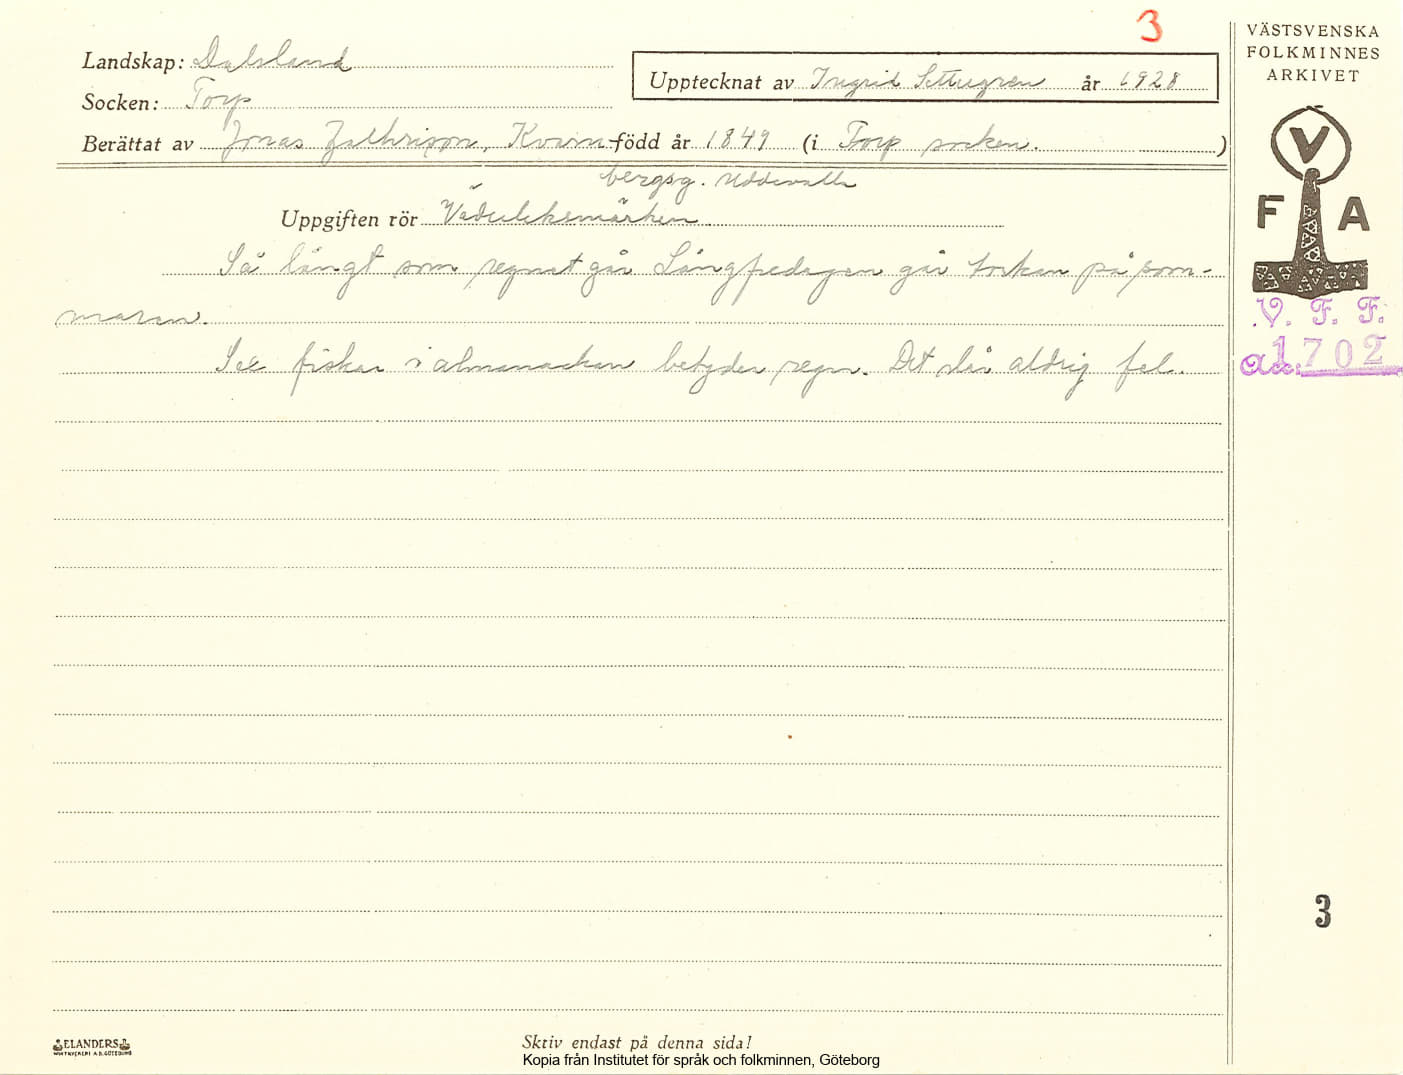 3
VÄSTSVENSKA
FOLKMINNES
ARKIVET
Landskap: Dalsland
Upptecknat av Ingrid år 1928
Socken: Torp
Berättat av Jonas Kvarn- född år 1849 (i Torp socken. )
bergsg. Uddevalla
Uppgiften rör Väderleksmärken
V
F A
Så långt som regnet går Långfredagen går torkan på som-
maren.
V. F. F.
Ac: 1702
fiskar i almanackan betyder regn. Det slår aldrig fel.
3
ELANDERS
Skriv endast på denna sida!
Kopia från Institutet för språk och folkminnen, Göteborg